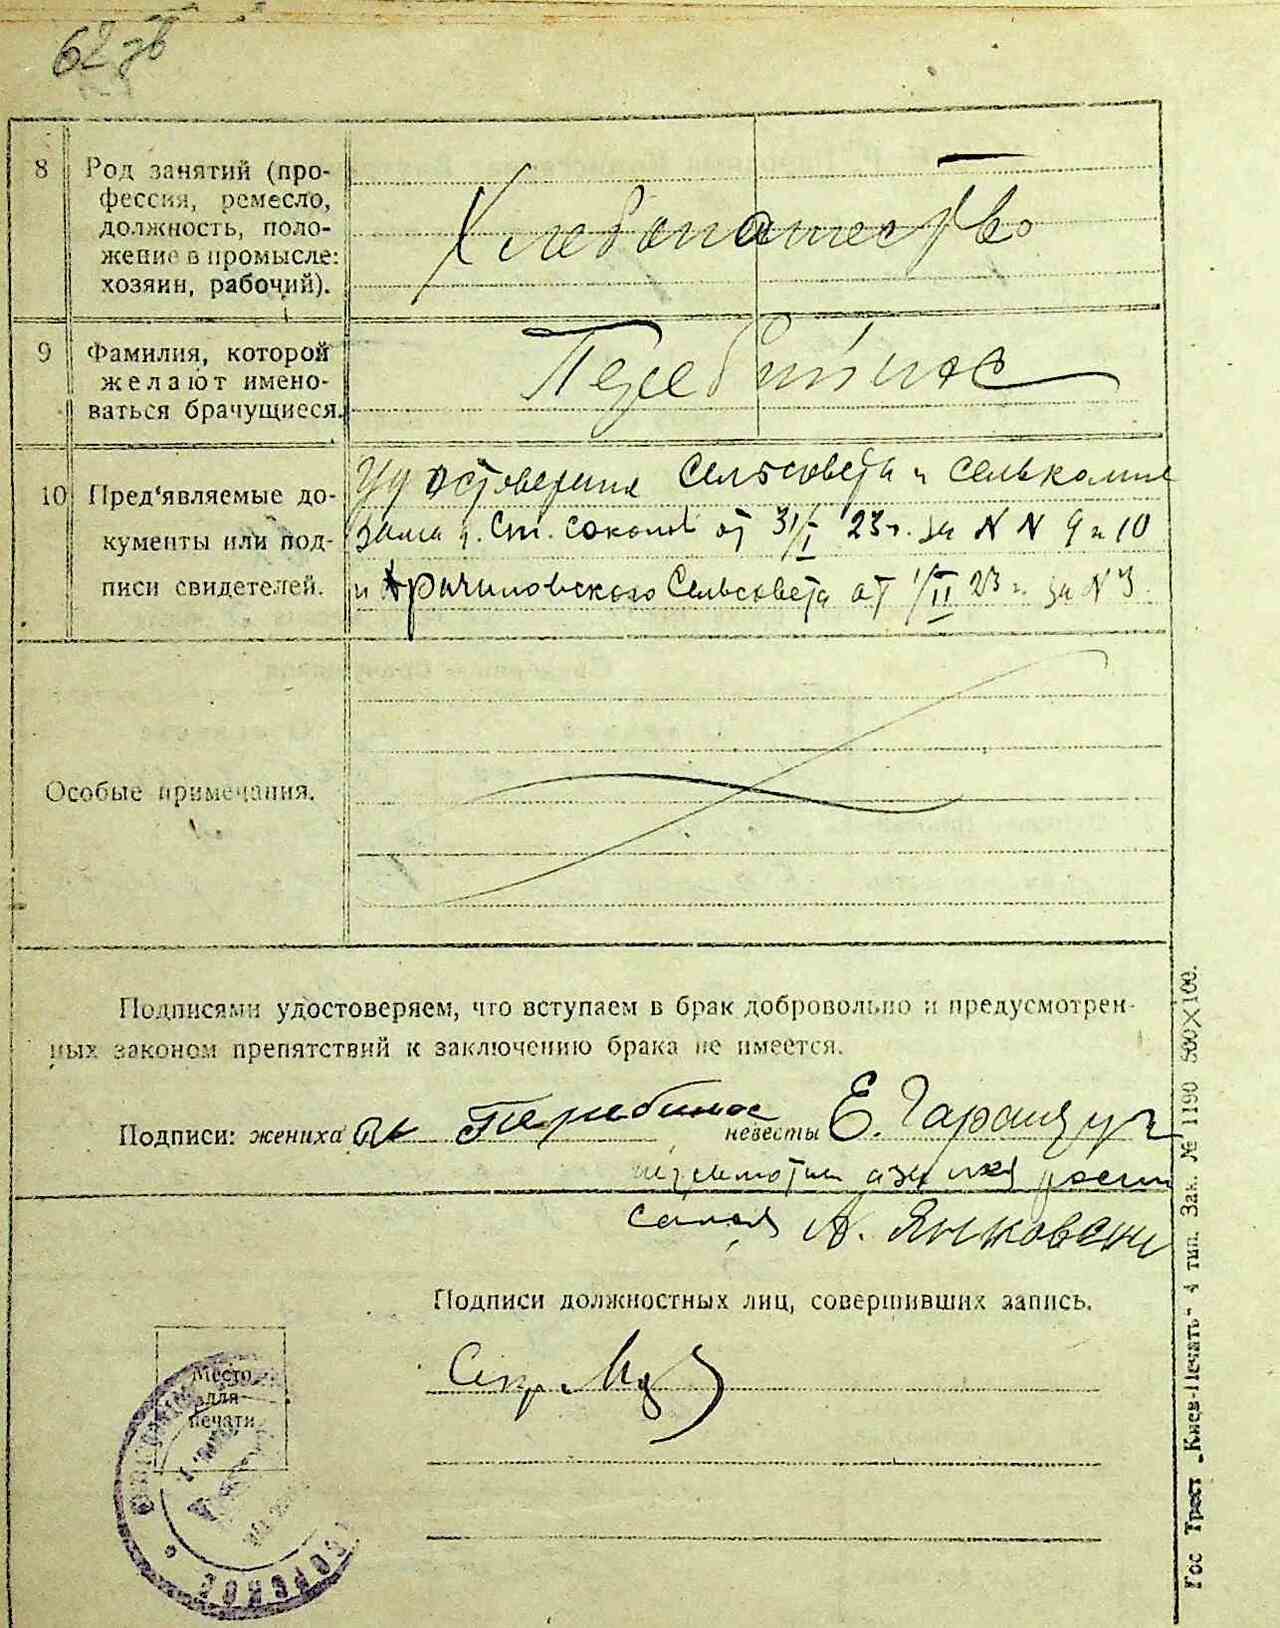 62 зв
8 Род занятий (про-
фессия, ремесло,
должность, поло-
жение в промысле:
хозяин, рабочий).
Хлебопашество
9 Фамилия, которой
желают имено-
ваться брачущиеся.
Перебийнос
10 Пред'являемые до-
кументы или под-
писи свидетелей.
Удостоверения Сельсовета и сельком
от 31/I 23 г. за N N 9 и 10
и Сельсовета от 1/II 23 г. за N 3
Особые примечания.
Подписями удостоверяем, что вступаем в брак добровольно и предусмотрен-
ных законом препятствий к заключению брака не имеется.
Подписи: жениха Перебинос невесты Е. Гаращук
А. Янковски
Подписи должностных лиц, совершивших запись.
Место
для
печати
Гос Трест „Киев-Печать" 4 тип. Зак. № 1190 500X100.